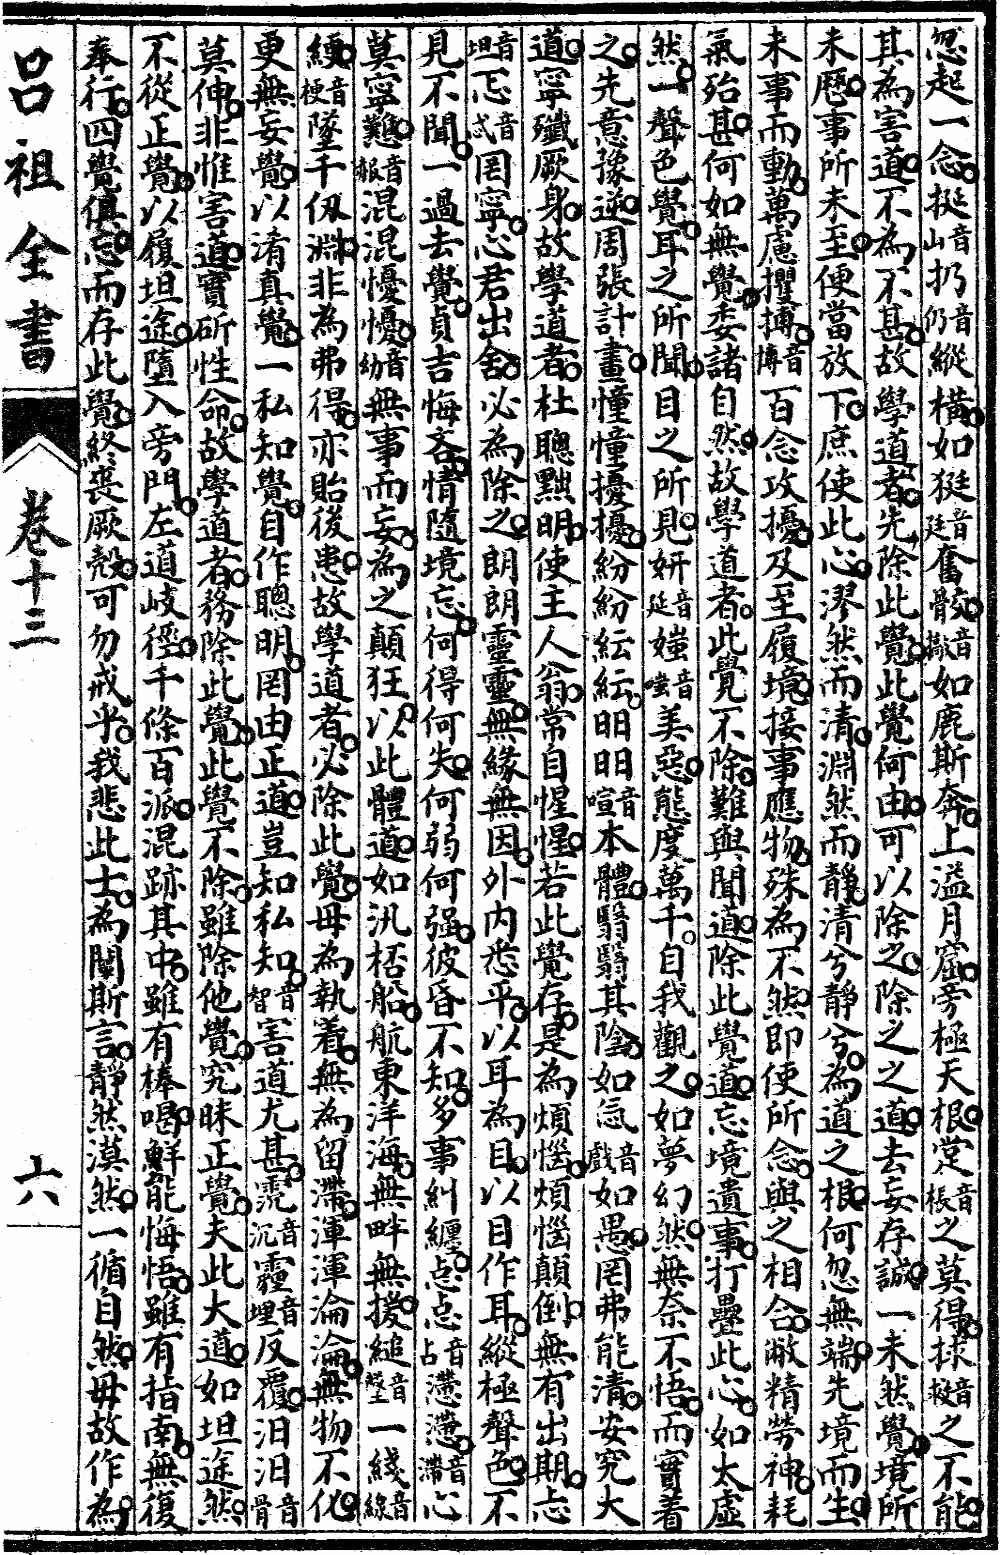 忽起一念挺音山扔音仍縱橫如狿音廷奮骹音撽如鹿斯奔上溢月窟旁極天根定音棖之莫得捄音挺之不能
其為害道不為不甚故學道者先除此覺此覺何由可以除之除之之道去妄存誠一未然覺境所
未歷事所未至便當放下庶使此心漻然而清淵然而靜清兮靜兮為道之根何忽無端先境而生
未事而動萬慮攫搏音博百念攻擾及至履境接事應物殊為不然即便所念與之相合敝精勞神耗
氣殆甚何如無覺委諸自然故學道者此覺不除難與聞道除此覺道忘境遺事打疊此心如太虛
然一聲色覺耳之所聞目之所見妍音延媸音蚩美惡態度萬千自我觀之如夢幻然無奈不悟而實着
之先意豫逆周張計畫憧憧擾擾紛紛紜紜昍昍音喧本體翳翳其陰如氣音戲如愚罔弗能清安究大
道寧殲厥身故學道者杜聰黜明使主人翁常自惺惺若此覺存是為煩惱煩惱顛倒無有出期忐
音坦忑音忒罔寧心君出舍必為除之朗朗靈靈無緣無因外內悉平以耳為目以目作耳縱極聲色不
見不聞一過去覺貞吉悔吝情隨境忘何得何失何弱何强彼昏不知多事糾纏怘怘音占懘懘音滯心
莫寧戁音赧混混懮懮音幼無事而妄為之顛狂以此體道如汎栝船航東洋海無畔無援縋音墜一綫音線
綆音梗墜千仭淵非為弗得亦貽後患故學道者必除此覺毋為執着無為留滯渾渾淪淪無物不化
更無妄覺以淆真覺一私知覺自作聰明罔由正道豈知私知音智害道尤甚霃音沉霾音埋反覆汨汨音骨
莫伸非惟害道實斫性命故學道者務除此覺此覺不除雖除他覺究昧正覺夫此大道如坦途然
不從正覺以履坦途墮入旁門左道岐徑千條百派混跡其中雖有棒喝鮮能悔悟雖有指南無復
奉行四覺俱忘而存此覺終喪厥殼可勿戒乎我悲此士為闡斯言靜然漠然一循自然毋故作為
呂祖全書
卷十三
六